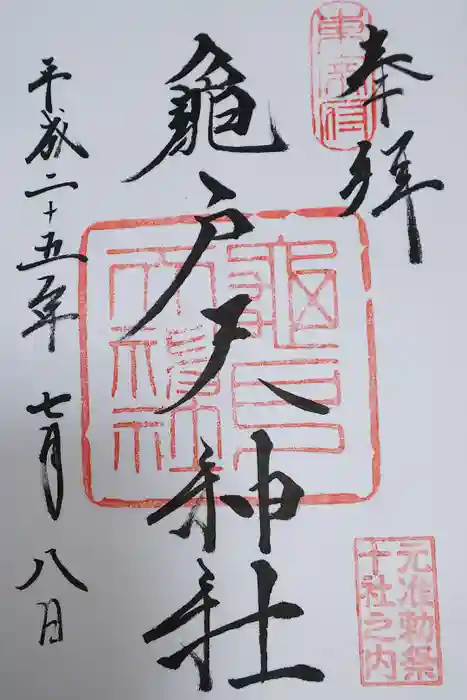 奉拝
亀戸天神社
平成二十五年七月八日
亀戸天神社
元准勅祭
十社之内